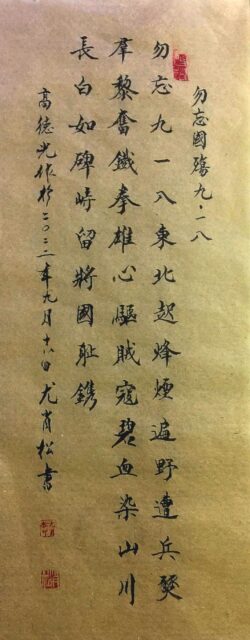 勿忘國殤九·一八
勿忘九一八東北起烽煙遍野遭兵燹
羣黎奮鐵拳雄心驅賊寇碧血染山川
長白如碑峙留將國耻鐫
高德光作於二〇二二年九月十八日尤肖松書